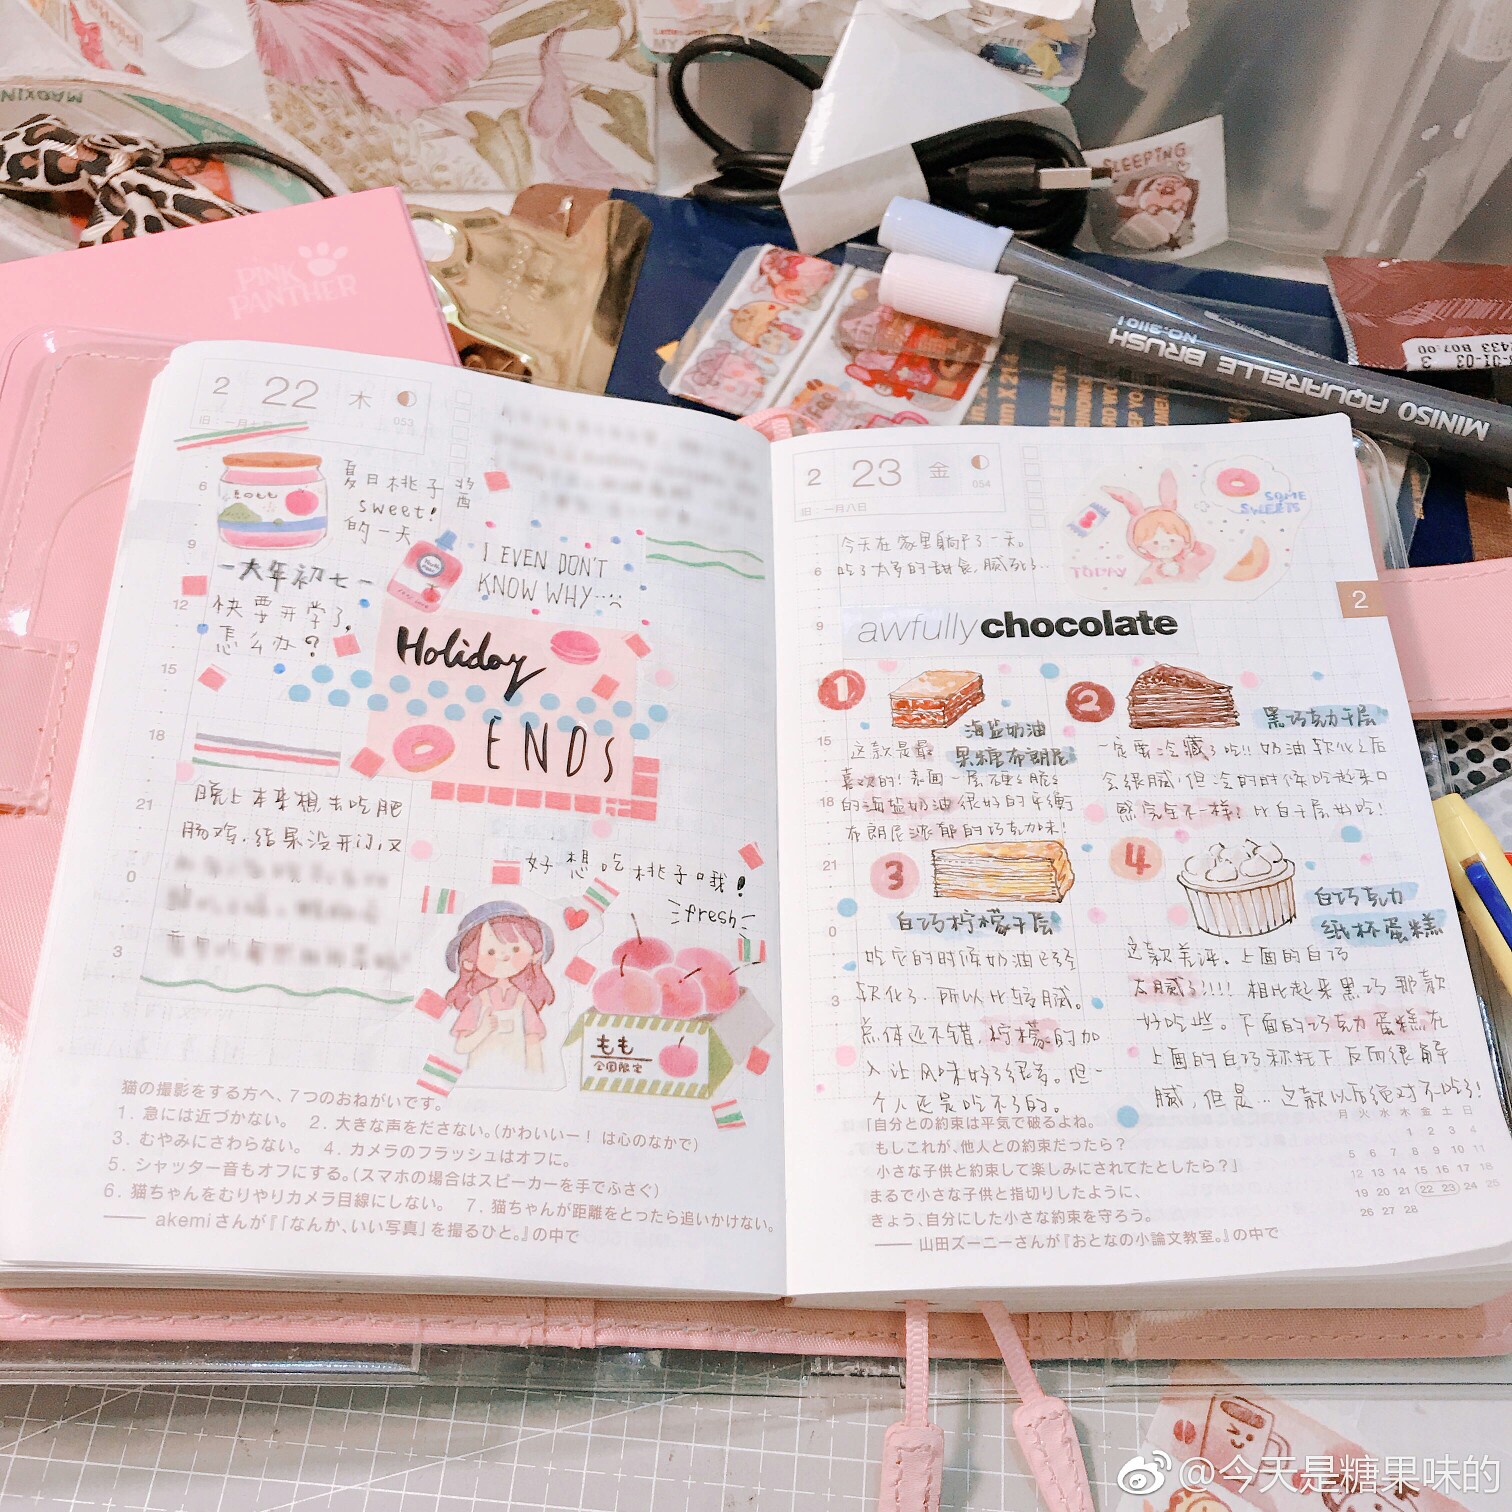 MAOXIN
PINK
PANTHER
SLEEPING
MINISO AQUARELLE BRUSH
NO.31101
2 22 木
053
夏日桃子
sweet!
的一天
I EVEN DON'T
KNOW WHY
一大年初七一
快要开学了,
怎么办?
Holiday
ENDS
晚上本来想去吃肥
肠鸡,结果没开门,又
好想吃桃子哦!
fresh
もも
全国限定
6
9
12
15
18
21
0
3
猫の撮影をする方へ、7つのおねがいです。
1. 急には近づかない。 2. 大きな声をださない。(かわいいー! は心のなかで)
3. むやみにさわらない。 4. カメラのフラッシュはオフに。
5. シャッター音もオフにする。(スマホの場合はスピーカーを手でふさぐ)
6. 猫ちゃんをむりやりカメラ目線にしない。 7. 猫ちゃんが距離をとったら追いかけない。
—— akemiさんが『「なんか、いい写真」を撮るひと。』の中で
2 23 金
054
旧:一月八日
今天在家里躺了一天。
吃了太多的甜食,腻死了..
SOME
SWEETS
TODAY
2
awfully chocolate
1
海盐奶油
果糖布朗尼
这款是最
喜欢的!表面一层硬硬脆脆
的海盐奶油很好的平衡
布朗尼浓郁的巧克力味!
2
黑巧克力千层
一定要冷藏了吃!!奶油软化之后
会很腻,但冷的时候吃起来口
感完全不一样?比白千层好吃!
3
白巧柠檬千层
吃它的时候奶油已经
软化了.所以比较腻。
总体还不错,柠檬的加
入让风味好了很多。但一
个人还是吃不了的。
4
白巧克力
纸杯蛋糕
这款差评。上面的白巧
太腻了!!!!相比起来黑巧那款
好吃些。下面的巧克力蛋糕在
上面的白巧衬托下反而很解
腻,但是…这款以后绝对不吃了!
6
9
15
18
21
0
3
「自分との約束は平気で破るよね。
もしこれが、他人との約束だったら?
小さな子供と約束して楽しみにされてたとしたら?」
まるで小さな子供と指切りしたように、
きょう、自分にした小さな約束を守ろう。
—— 山田ズーニーさんが『おとなの小論文教室。』の中で
月 火 水 木 金 土 日
1 2 3 4
5 6 7 8 9 10 11
12 13 14 15 16 17 18
19 20 21 22 23 24 25
26 27 28
@今天是糖果味的